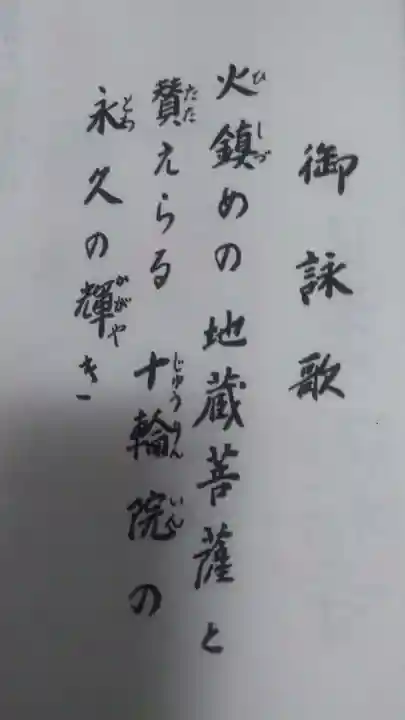 御詠歌
火鎮めの地蔵菩薩と
賛えらる十輪院の
永久の輝き